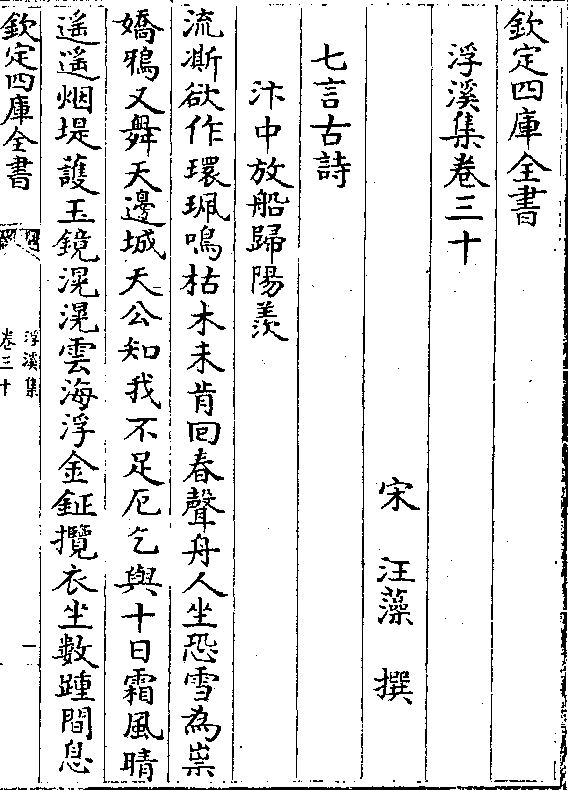 欽定四庫全書
浮溪集卷三十
宋　汪藻　撰
七言古詩
汴中放船歸陽羨
流澌欲作環珮鳴枯木未肯回春聲舟人坐恐雪為祟
嬌鵶又舞天邊城天公知我不足厄乞與十日霜風晴
遥遥烟堤護玉鏡滉滉雲海浮金鉦攬衣坐數踵間息
欽定四庫全書
浮溪集
卷三十
一